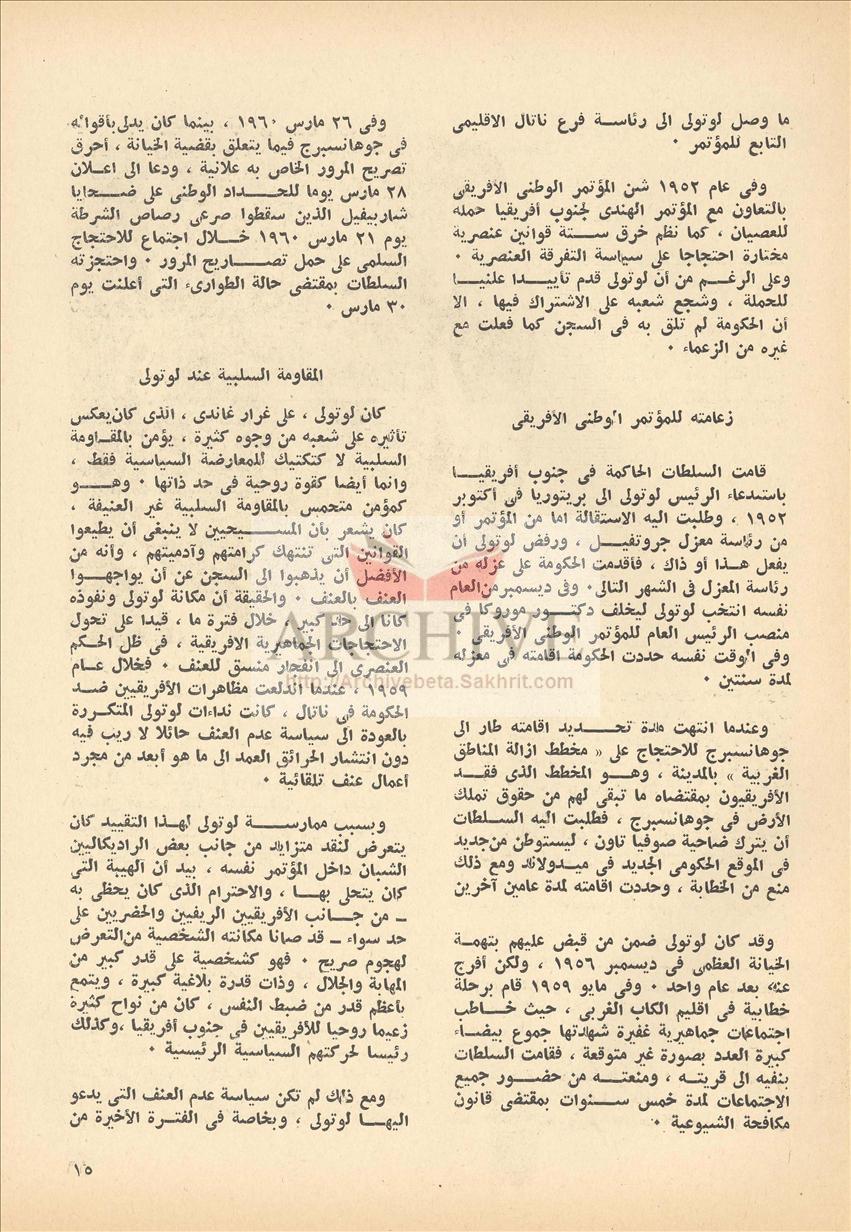 ما وصل لوتولى الى رئاسة فرع ناتال الاقليمى
التابع للمؤتمر ٠
وفى عام ١٩٥٢ شن المؤتمر الوطنى الأفريقى
بالتعاون مع المؤتمر الهندى لجنوب أفريقيا حمله
للعصيان ، كما نظم خرق ستة قوانين عنصرية
مختارة احتجاجا على سياسة التفرقة العنصرية ٠
وعلى الرغم من أن لوتولى قدم تأييدا علنيا
للحملة ، وشجع شعبه على الاشتراك فيها ، الا
أن الحكومة لم تلق به فى السجن كما فعلت مع
غيره من الزعماء ٠
زعامته للمؤتمر الوطنى الأفريقى
قامت السلطات الحاكمة فى جنوب أفريقيا
باستدعاء الرئيس لوتولى الى بريتوريا فى أكتوبر
١٩٥٢ ، وطلبت اليه الاستقالة اما من المؤتمر أو
من رئاسة معزل جروتفيل ، ورفض لوتولى أن
يفعل هذا أو ذاك ، فأقدمت الحكومة على عزله من
رئاسة المعزل فى الشهر التالى ٠ وفى ديسمبر من العام
نفسه انتخب لوتولى ليخلف دكتور موروكا فى
منصب الرئيس العام للمؤتمر الوطنى الأفريقى ٠
وفى الوقت نفسه حددت الحكومة اقامته فى معزله
لمدة سنتين ٠
وعندما انتهت مدة تحديد اقامته طار الى
جوهانسبرج للاحتجاج على « مخطط ازالة المناطق
الغربية » بالمدينة ، وهو المخطط الذى فقد
الأفريقيون بمقتضاه ما تبقى لهم من حقوق تملك
الأرض فى جوهانسبرج ، فطلبت اليه السلطات
أن يترك ضاحية صوفيا تاون ، ليستوطن من جديد
فى الموقع الحكومى الجديد فى ميدولاند ومع ذلك
منع من الخطابة ، وحددت اقامته لمدة عامين آخرين
وقد كان لوتولى ضمن من قبض عليهم بتهمة
الخيانة العظمى فى ديسمبر ١٩٥٦ ، ولكن أفرج
عنه بعد عام واحد ٠ وفى مايو ١٩٥٩ قام برحلة
خطابية فى اقليم الكاب الغربى ، حيث خاطب
اجتماعات جماهيرية غفيرة شهدتها جموع بيضاء
كبيرة العدد بصورة غير متوقعة ، فقامت السلطات
بنفيه الى قريته ، ومنعته من حضور جميع
الاجتماعات لمدة خمس سنوات بمقتضى قانون
مكافحة الشيوعية ٠
وفى ٢٦ مارس ١٩٦٠ ، بينما كان يدلى بأقواله
فى جوهانسبرج فيما يتعلق بقضية الخيانة ، أحرق
تصريح المرور الخاص به علانية ، ودعا الى اعلان
٢٨ مارس يوما للحداد الوطنى على ضحايا
شاربيفيل الذين سقطوا صرعى رصاص الشرطة
يوم ٢١ مارس ١٩٦٠ خلال اجتماع للاحتجاج
السلمى على حمل تصاريح المرور ٠ واحتجزته
السلطات بمقتضى حالة الطوارىء التى أعلنت يوم
٣٠ مارس ٠
المقاومة السلبية عند لوتولى
كان لوتولى ، على غرار غاندى ، الذى كان يعكس
تأثيره على شعبه من وجوه كثيرة ، يؤمن بالمقاومة
السلبية لا كتكتيك للمعارضة السياسية فقط ،
وانما أيضا كقوة روحية فى حد ذاتها ٠ وهو
كمؤمن متحمس بالمقاومة السلبية غير العنيفة ،
كان يشعر بأن المسيحيين لا ينبغى أن يطيعوا
القوانين التى تنتهك كرامتهم وآدميتهم ، وأنه من
الأفضل أن يذهبوا الى السجن عن أن يواجهوا
العنف بالعنف ٠ والحقيقة أن مكانة لوتولى ونفوذه
كانا الى حد كبير ، خلال فترة ما ، قيدا على تحول
الاحتجاجات الجماهيرية الافريقية ، فى ظل الحكم
العنصرى الى انفجار منسق للعنف ٠ فخلال عام
١٩٥٩ ، عندما اندلعت مظاهرات الأفريقيين ضد
الحكومة فى ناتال ، كانت نداءات لوتولى المتكررة
بالعودة الى سياسة عدم العنف حائلا لا ريب فيه
دون انتشار الحرائق العمد الى ما هو أبعد من مجرد
أعمال عنف تلقائية ٠
وبسبب ممارسة لوتولى لهذا التقييد كان
يتعرض لنقد متزايد من جانب بعض الراديكاليين
الشبان داخل المؤتمر نفسه ، بيد أن الهيبة التى
كان يتحلى بها ، والاحترام الذى كان يحظى به
– من جانب الأفريقيين الريفيين والحضريين على
حد سواء – قد صانا مكانته الشخصية من التعرض
لهجوم صريح ٠ فهو كشخصية على قدر كبير من
المهابة والجلال ، وذات قدرة بلاغية كبيرة ، ويتمع
بأعظم قدر من ضبط النفس ، كان من نواح كثيرة
زعيما روحيا للأفريقيين فى جنوب أفريقيا ، وكذلك
رئيسا لحركتهم السياسية الرئيسية ٠
ومع ذلك لم تكن سياسة عدم العنف التى يدعو
اليها لوتولى ، وبخاصة فى الفترة الأخيرة من
١٥
ARCHIVE
http://Archivebeta.Sakhrit.com